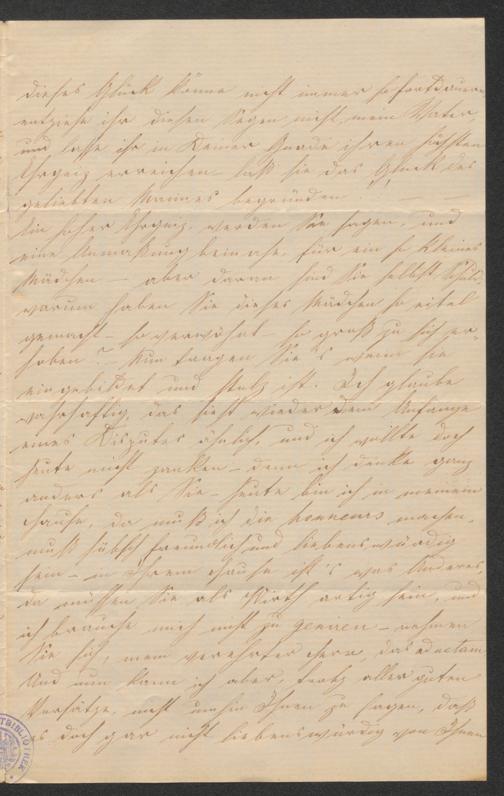 dieses Glück könne nicht immer so fortdauern
entziehe ihr diesen Segen nicht, mein Vater
und lasse ihr in Deiner Gnade ihren höchsten
Ehrgeiz erreichen – laß sie das Glück des
geliebten Mannes begründen! – –
Ein hoher Ehrgeiz, werden Sie sagen, und
eine Anmaßung beinahe, für ein so kleines
Mädchen – aber daran sind Sie selbst Schuld,
warum haben Sie dieses Mädchen so eitel
gemacht – so verwöhnt – so groß zu sich er-
hoben? – Nun tragen Sie's wenn sie
eingebildet und stolz ist. Ich glaube
wahrhaftig, das sieht wieder dem Anfange
eines Disputes ähnlich, und ich wollte doch
heute nicht zanken – denn ich denke ganz
anders als Sie – heute bin ich in meinem
Hause, da muß ich die honneurs machen,
muß hübsch freundlich und liebenswürdig
sein – in Ihrem Hause ist's was Anderes,
da müssen Sie als Wirth artig sein, und
ich brauche mich nicht zu geniren – nehmen
Sie sich, mein verehrter Herr, das ad notam
Und nun kann ich aber, trotz aller guten
Vorsätze, nicht umhin Ihnen zu sagen, daß
es doch gar nicht liebenswürdig von Ihnen